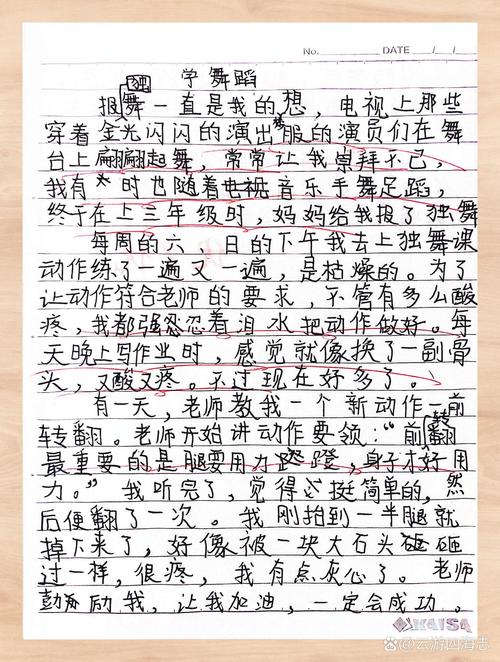 No. DATE / /
学舞蹈
报独舞一直是我的想，电视上那些
穿着金光闪闪的演出服的演员们在舞
台上翩翩起舞，常常让我崇拜不已，
我有时也随着电视音乐手舞足蹈，
终于在上三年级时，妈妈给我报了独舞
每周的六、日的下午我去上独舞课
动作练了一遍又一遍，是枯燥的。为了
让动作符合老师的要求，不管有多么酸
疼，我都强忍忍着泪水把动作做好。每
天晚上写作业时，感觉就像换了一副骨
头，又酸又疼。不过现在好多了。
有一天，老师教我一个新动作—前
转翻。老师开始讲动作要领：“前转翻
最重要的是腿要用力蹬，身子才好用
力。”我听完了，觉得挺简单的，然
后便翻了一次。我刚拍到一半腿就
掉下来了，好像被一块大石头砸
过一样，很疼，我有点灰心了。老师
励我，让我加油，一定会成功。
KAISA
@云游四海志